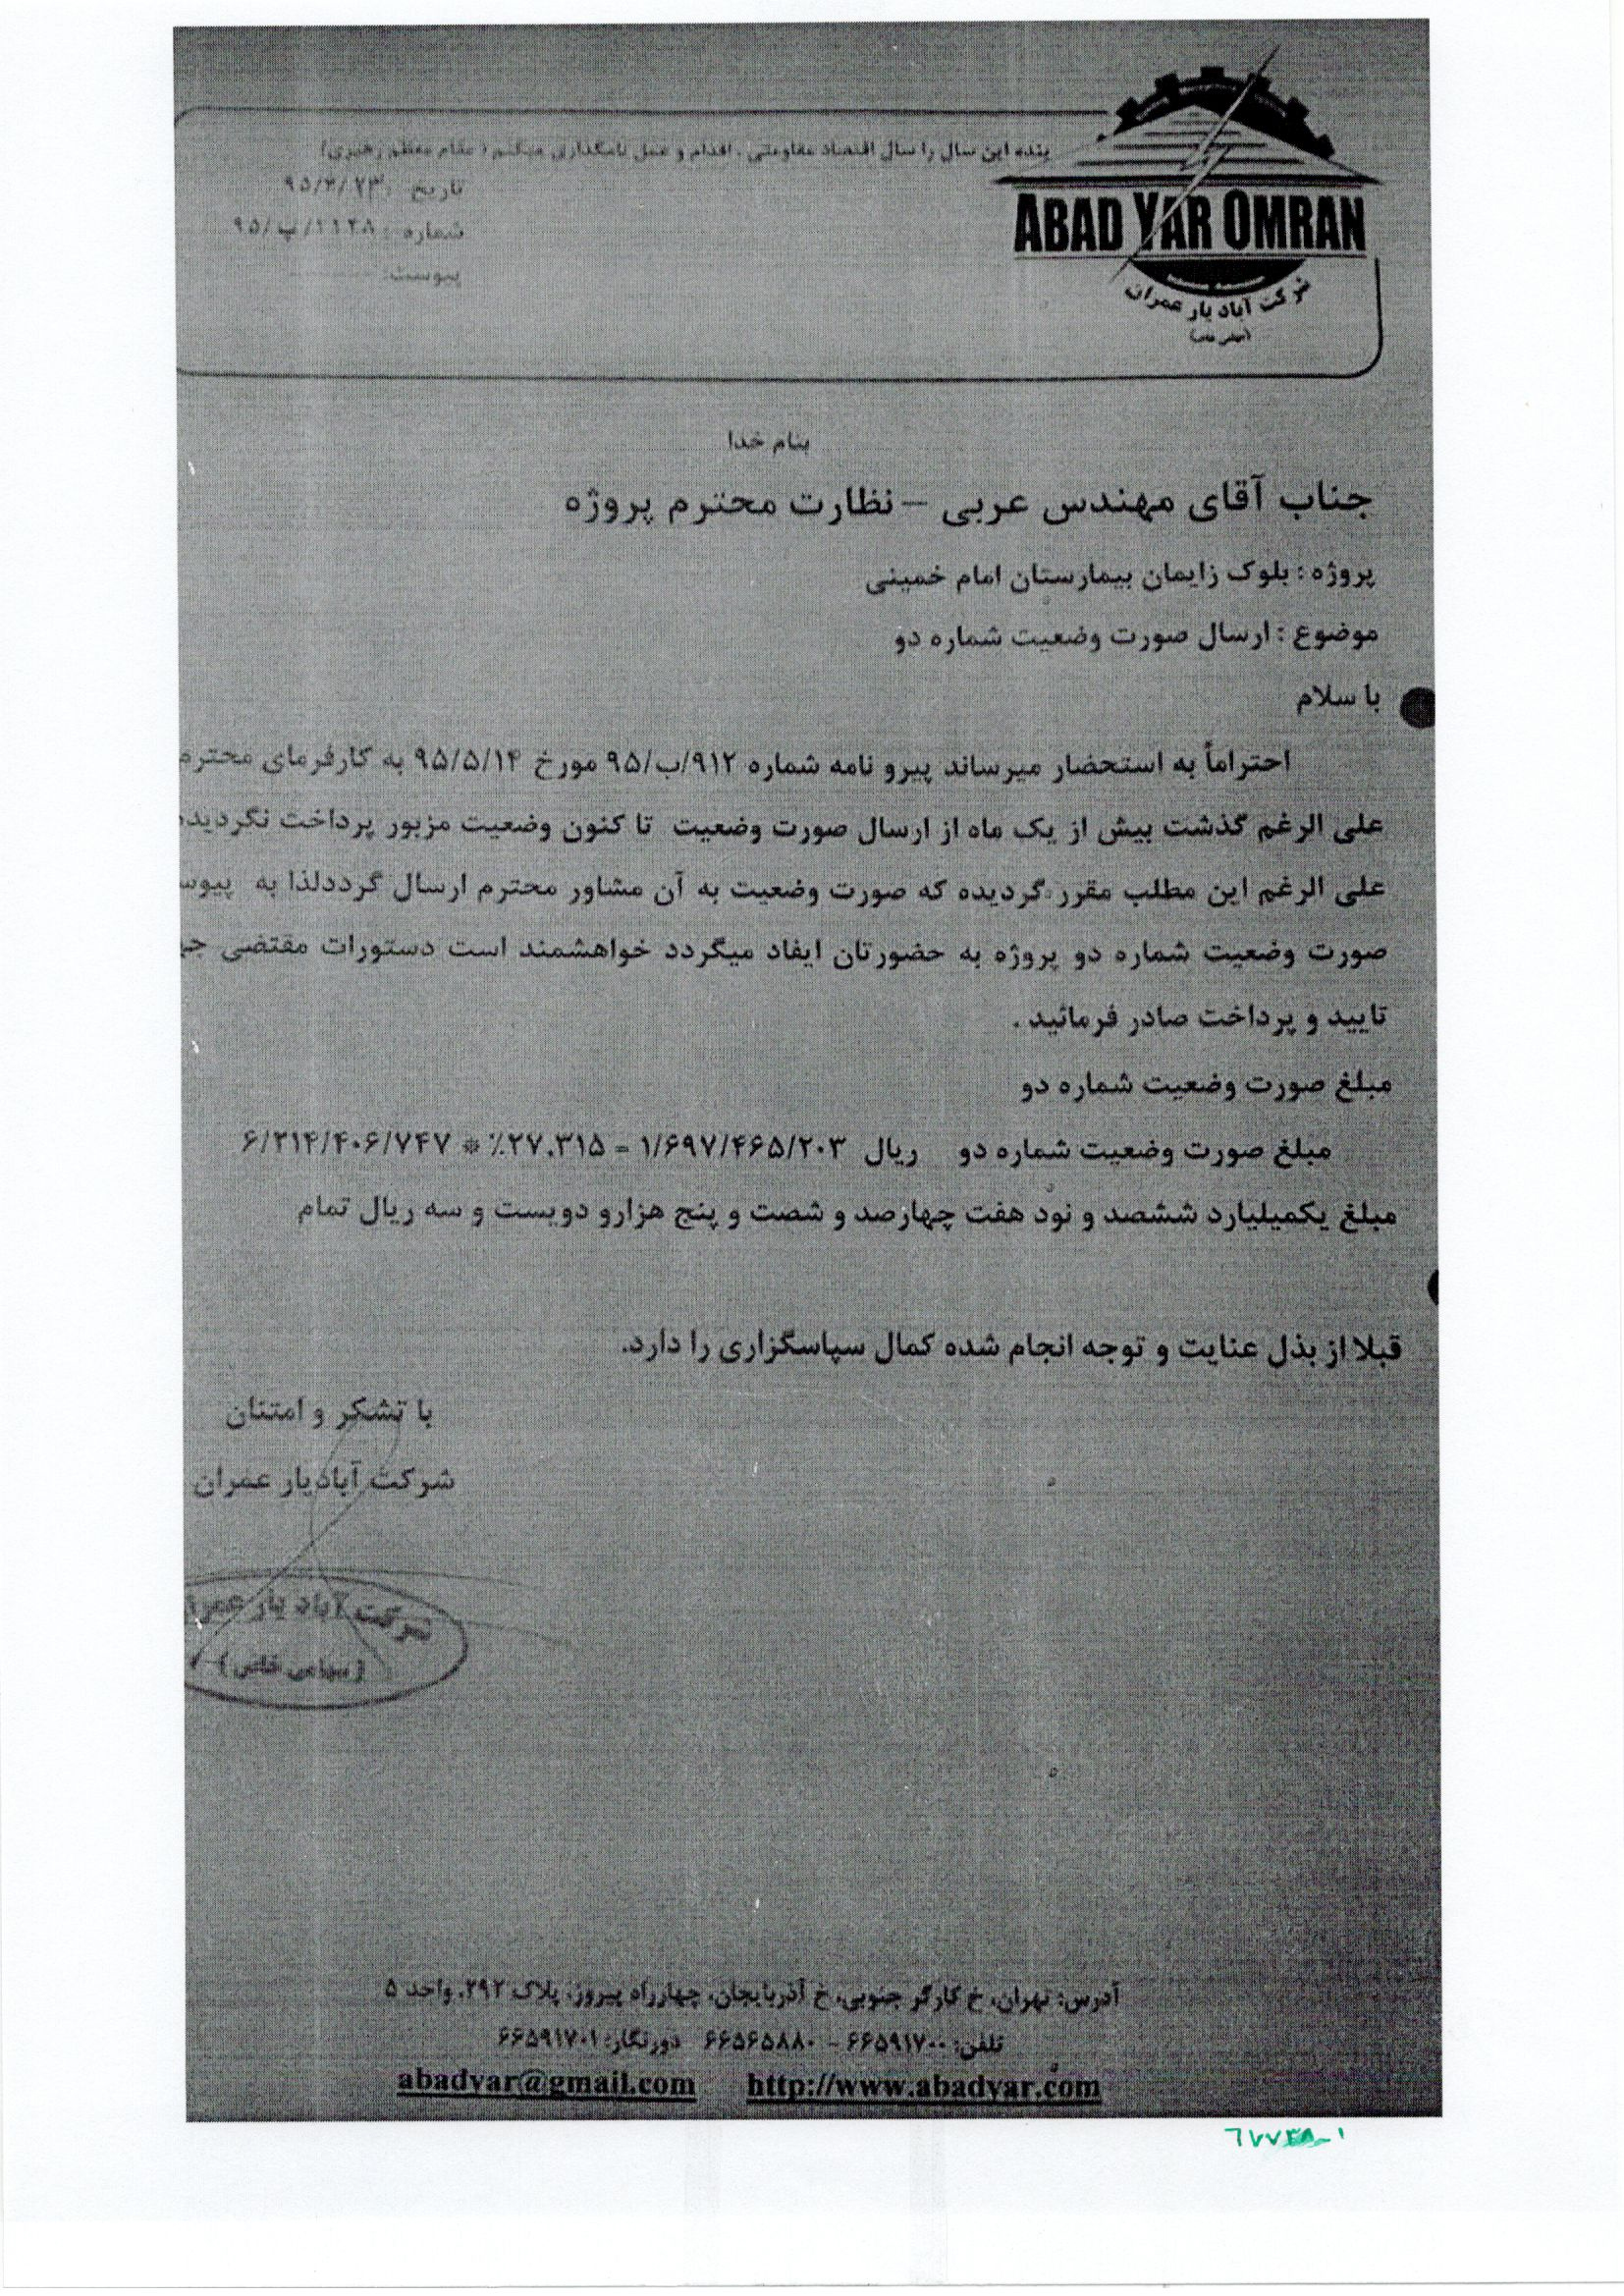 بنده این سال را سال اقتصاد مقاومتی ، اقدام و عمل نامگذاری میکنم ( مقام معظم رهبری)
تاریخ :
شماره :
پیوست:
ABAD YAR OMRAN
شرکت آباد یار عمران
بنام خدا
جناب آقای مهندس عربی – نظارت محترم پروژه
پروژه : بلوک زایمان بیمارستان امام خمینی
موضوع : ارسال صورت وضعیت شماره دو
با سلام
احتراماً به استحضار میرساند پیرو نامه شماره ۹۱۲/ب/۹۵ مورخ ۹۵/۵/۱۴ به کارفرمای محترم
علی الرغم گذشت بیش از یک ماه از ارسال صورت وضعیت تا کنون وضعیت مزبور پرداخت نگردیده
علی الرغم این مطلب مقرر گردیده که صورت وضعیت به آن مشاور محترم ارسال گرددلذا به پیوس
صورت وضعیت شماره دو پروژه به حضورتان ایفاد میگردد خواهشمند است دستورات مقتضی جه
تایید و پرداخت صادر فرمائید .
مبلغ صورت وضعیت شماره دو
مبلغ صورت وضعیت شماره دو ریال ۱/۶۹۷/۴۶۵/۲۰۳ = ۲۷.۳۱۵٪ * ۶/۲۱۴/۴۰۶/۷۴۷
مبلغ یکمیلیارد ششصد و نود هفت چهارصد و شصت و پنج هزارو دویست و سه ریال تمام
قبلا از بذل عنایت و توجه انجام شده کمال سپاسگزاری را دارد.
با تشکر و امتنان
شرکت آبادیار عمران
شرکت آباد یار عمر
(سهامی خاص)
آدرس: تهران، خ کارگر جنوبی، خ آذربایجان، چهارراه پیروز، پلاک ۲۹۲، واحد ۵
تلفن: ۶۶۵۹۱۷۰۰ - ۶۶۵۶۵۸۸۰ دورنگار: ۶۶۵۹۱۷۰۱
abadyar@gmail.com http://www.abadyar.com